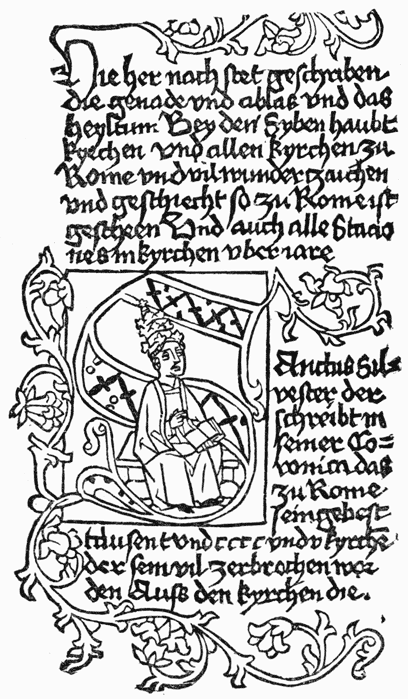 Hie her nach stet geschriben
die genade vnd ablas vnd das
heyltum Bey den Syben haubt
kyrchen vnd allen kyrchen zu
Rome vnd vil wunderzaichen
vnd geschiecht so zu Rome ist
gescheen Vnd auch alle Stacio
nes in kyrchen vber iare
Sanctus Sil=
vester der
schreibt in
seiner Co=
ronica das
zu Rome
sein gebest
tausent vnd cccc vnd v kyrche
der sein vil zerbrochen wor
den Auſs den kyrchen die.